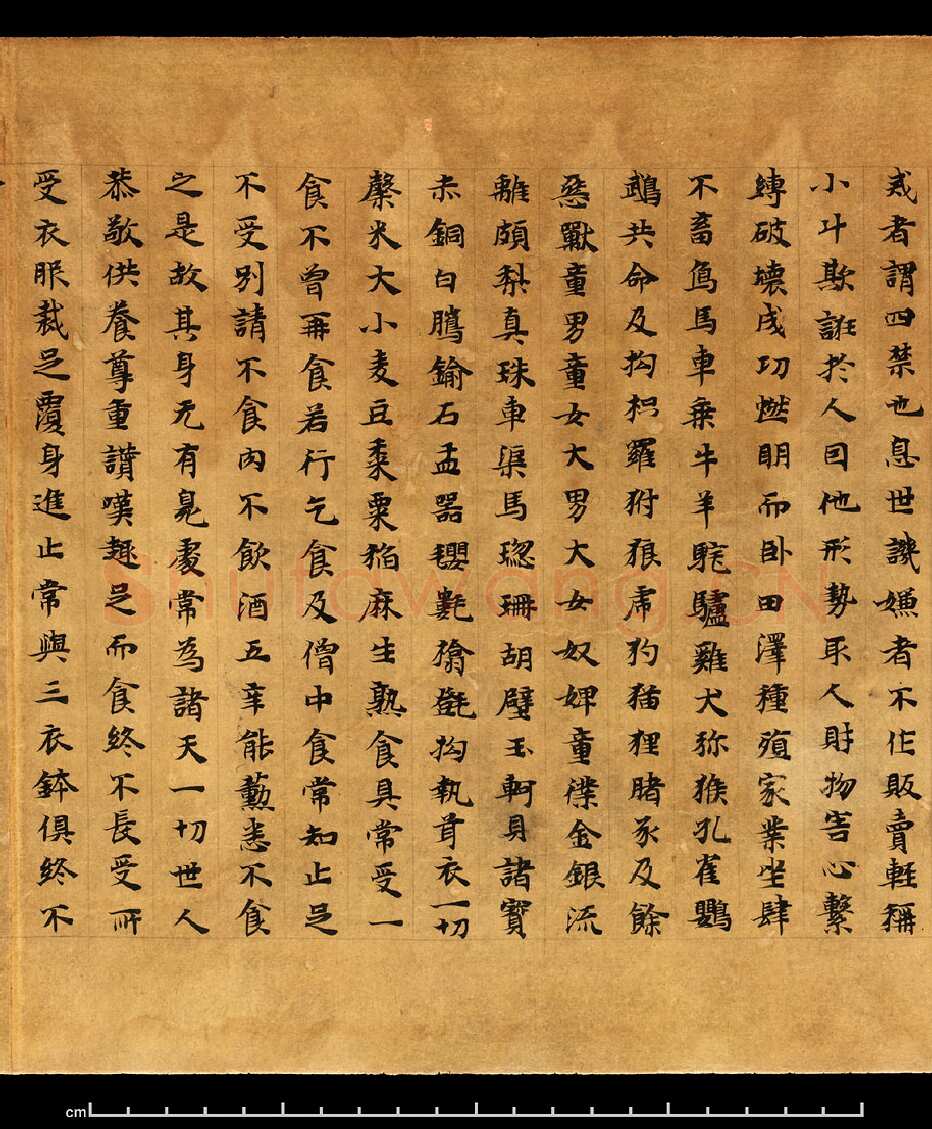 戒者謂四禁也息世譏嫌者不作販賣輕秤
小斗欺誑於人因他形勢取人財物害心繫
縛破壞成功燃明而卧田澤種殖家業坐肆
不畜烏馬車乗牛羊駝驢雞犬弥猴孔雀鸚
鵡共命及拘枳羅豺狼虎豹猫狸豬豕及餘
惡獸童男童女大男大女奴婢童僕金銀流
離頗梨真珠車渠馬瑙珊胡璧玉軻貝諸寶
赤銅白鑞鍮石盂器氍㲣毾㲪拘執茸衣一切
穀米大小麦豆黍粟稻麻生熟食具常受一
食不曾再食若行乞食及僧中食常知止足
不受別請不食肉不飲酒五辛能勳悉不食
之是故其身无有臭處常為諸天一切世人
恭敬供養尊重讚嘆趣足而食終不長受所
受衣服裁足覆身進止常與三衣鉢俱終不
Shufawang.CN
cm